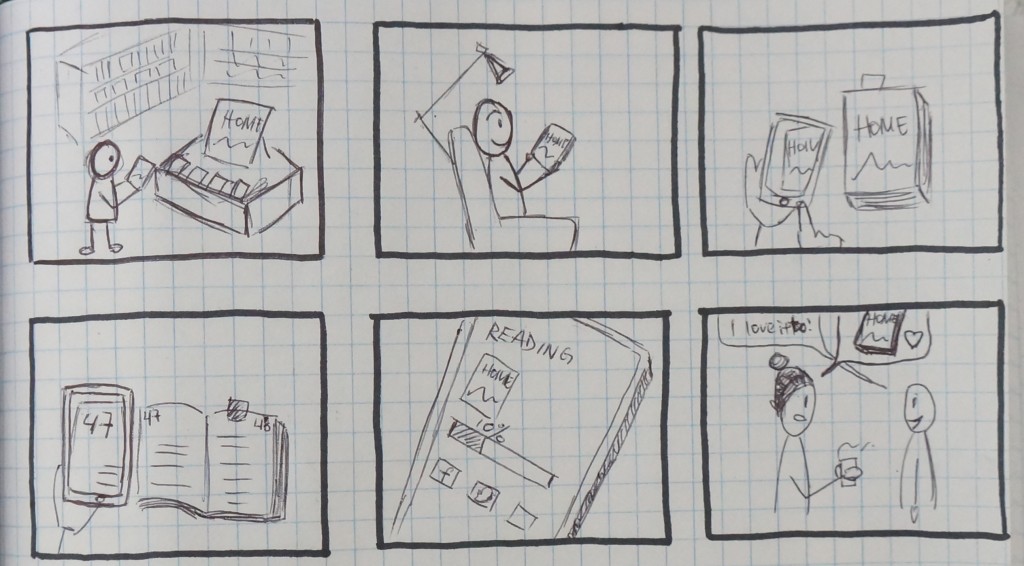 HOME
HOME
HOME
HOME
47
47
48
READING
HOME
10%
f
I love it too!
HOME